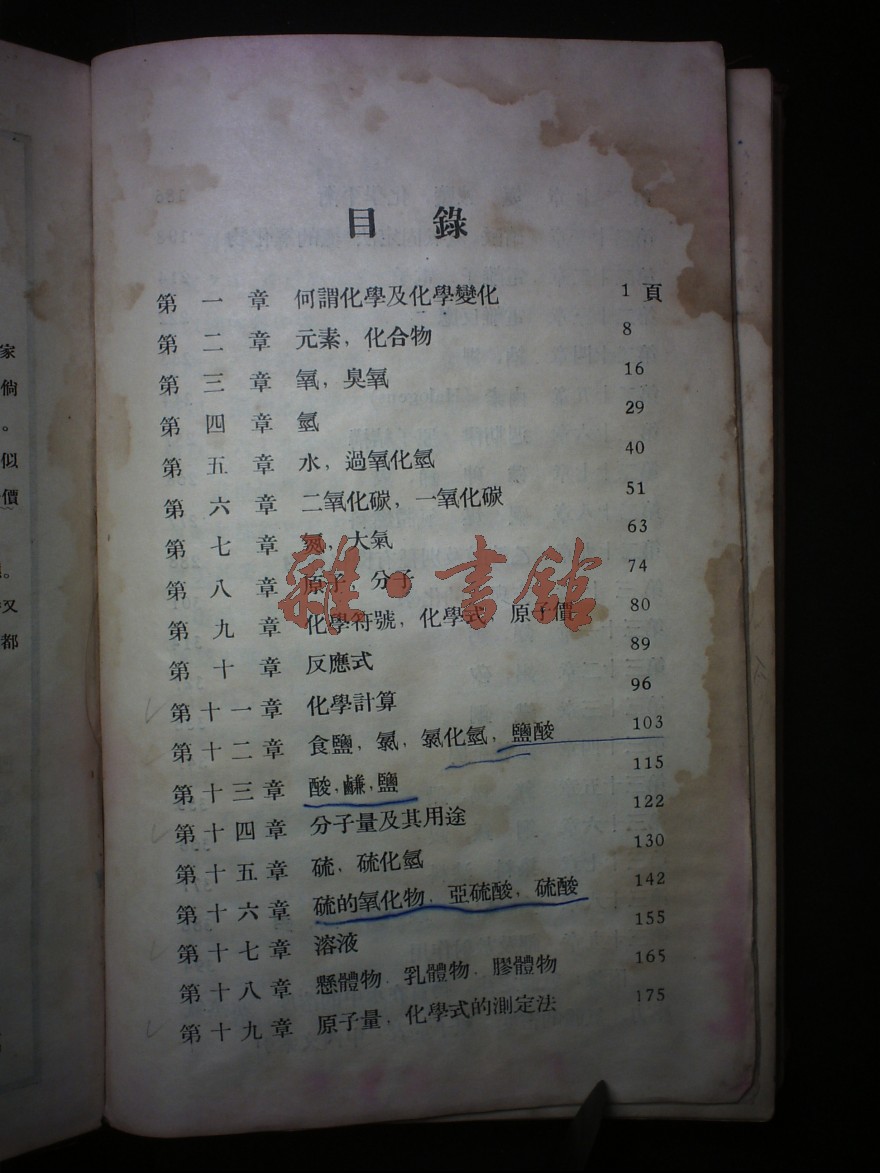 目錄
第一章 何謂化學及化學變化 1頁
第二章 元素，化合物 8
第三章 氧，臭氧 16
第四章 氫 29
第五章 水，過氧化氫 40
第六章 二氧化碳，一氧化碳 51
第七章 氮，大氣 63
第八章 原子，分子 74
第九章 化學符號，化學式 原子價 80
第十章 反應式 89
第十一章 化學計算 96
第十二章 食鹽，氯，氯化氫，鹽酸 103
第十三章 酸，鹼，鹽 115
第十四章 分子量及其用途 122
第十五章 硫，硫化氫 130
第十六章 硫的氧化物，亞硫酸，硫酸 142
第十七章 溶液 155
第十八章 懸體物，乳體物，膠體物 165
第十九章 原子量，化學式的測定法 175
雜·書館
家
倘
。
似
價
。
又
都